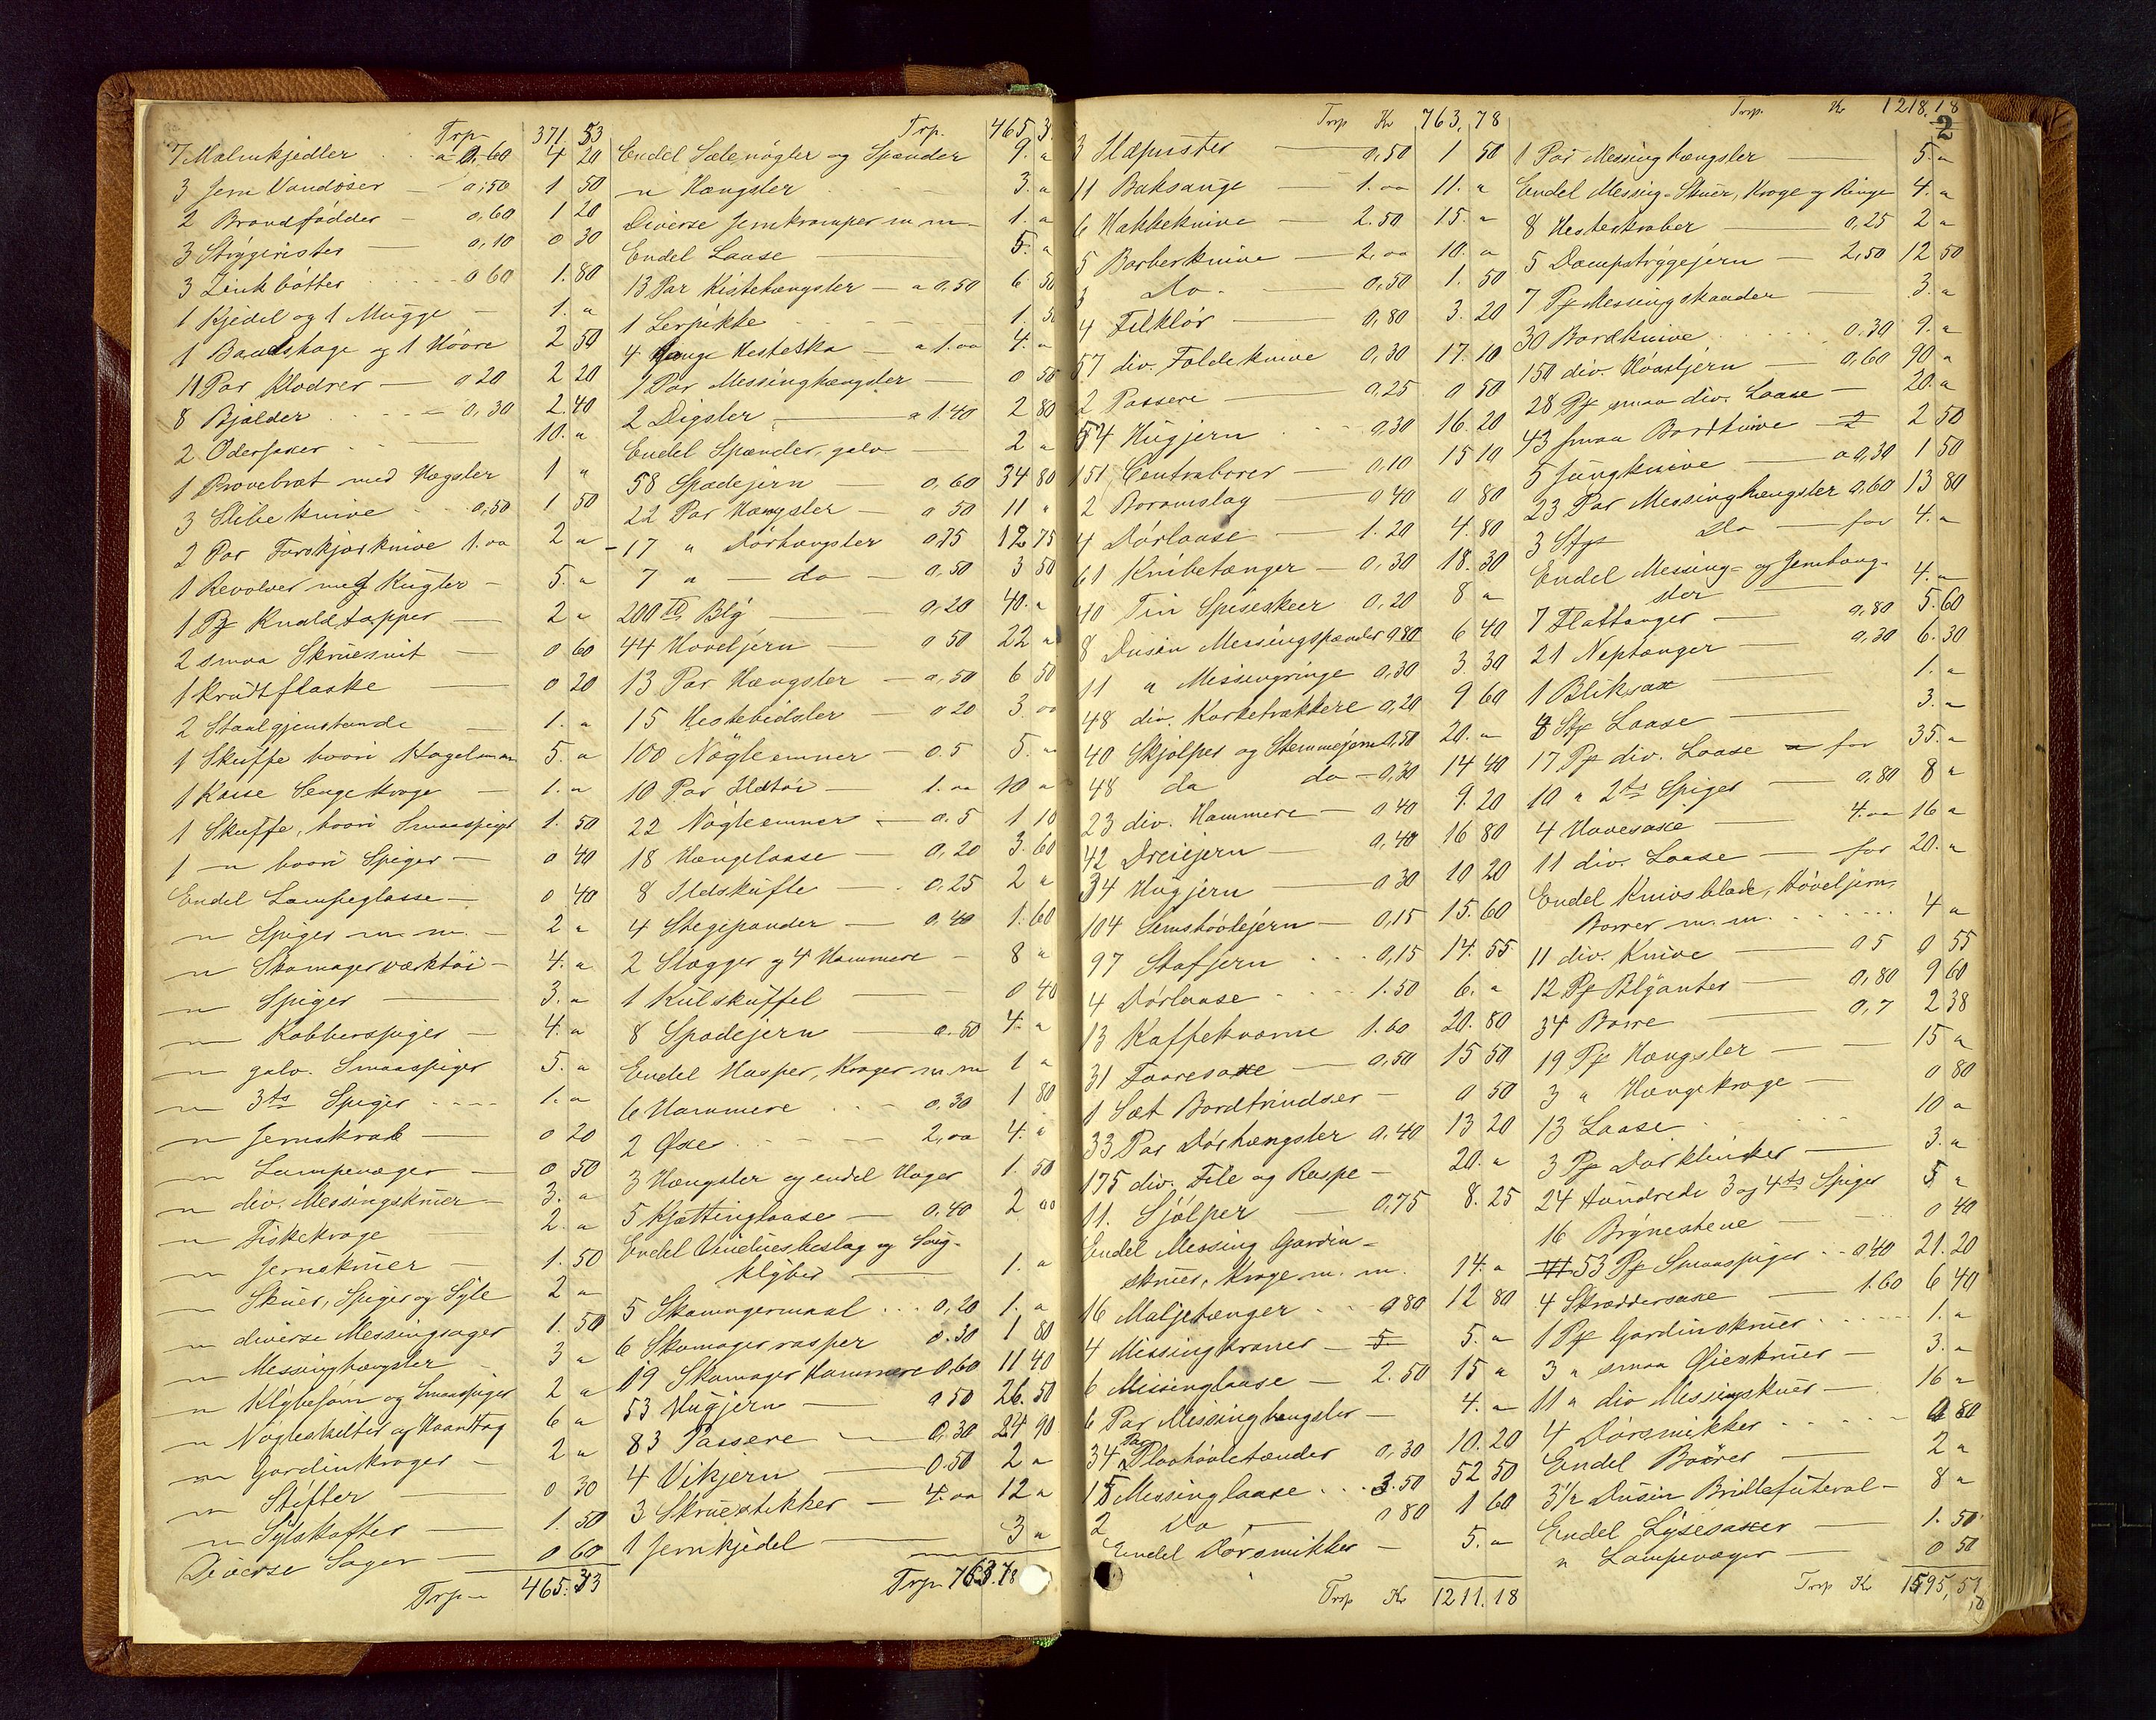 Trp. 371 53
7 Malmkjedler a 0.60 4 20
3 Jern Vandøser 0,50 1 50
2 Brandfödder 0,60 1 20
3 Strygerister 0,10 0 30
3 Zinkbøtter 0 60 1.80
1 Kjedel og 1 Mugge 1. "
1 Baadshage og 1 2 50
11 Par Klodrer 0 20 2 20
8 Bjelder 0,30 2.40
2 10. "
1 Prøvebræt med Hægsler 1 "
3 Slibeknive 0,50 1 50
2 Par Forskjærknive 1.00 2 "
1 Revolver med Kugler 5. "
1 Pk Knaldtapper 2 "
2 smaa Skruesnit 0 60
1 Krudtflaske 0 20
2 Staalgjenstande 1. "
1 Skuffe hvori Hagel m m 5. "
1 Kasse Sengekroge 1. "
1 Skuffe, hvori Smaaspiger 1. 50
1 " hvori Spiger 0 40
Endel Lampeglasse 0 40
" Spiger m. m. 2 "
" Skomagerværktøi 4. "
" Spiger 3. "
" Kobberspiger 4. "
" galv. Smaaspiger 5. "
" 3ts Spiger 1. "
" Jernskrab 0 20
" Lampevæger 0 50
" div. Messingskruer 3. "
" Fiskekroge 2. "
" Jernskruer 1. 50
" Skruer, Spiger og Syle 2 "
" diverse Messingsager 1. 50
" Messinghængsler 3 "
" Klybesøm og Smaaspiger 2 "
" Nögleskilter og Haandtag 6 "
" Gardinkroger 2 "
" Stifter 0 30
" Sylskafter 1. 50
Diverse Sager 0 60
Trp 465.33
Trp. 465 3
Endel Sætenögler og Spænder 9. "
" Hængsler 3. "
Diverse Jernkramper m m 1. "
Endel Laase 5. "
13 Par Kistehængsler a 0,50 6 50
1 Lerpikke 1. 50
4 Gange Hestesko a 1.00 4. "
1 Par Messinghængsler 0 50
2 Digsler a 1.40 2 80
Endel Spænder, galv 2 "
58 Spadejern 0,60 34 80
22 Par Hængsler 0 50 11 "
17 " Dörhængsler 0.75 12 75
7 " do 0,50 3 50
200 tb Bly 0,20 40. "
44 Höveljern 0 50 22 "
13 Par Hængsler 0,50 6 50
15 Hestebidsler 0 20 3. 00
100 Nögleemner 0.5 5. "
10 Par Ildtöi 1. 00 10 "
22 Nögleemner 0.5 1 10
18 Hængelaase 0,20 3.60
8 Ildskufle 0,25 2 "
4 Stegepander 0,40 1.60
2 Slægger og 4 Hammere 8 "
1 Kulskuffel 0 40
8 Spadejern 0.50 4. "
Endel Hasper, Kroger m m 1 "
6 Hammere 0,30 1 80
2 Øxe 2,00 4. "
3 Hængsler og endel Hager 1. 50
5 Kjættinglaase 0.40 2 00
Endel Vinduesbeslag og
Klyber 1. "
5 Skomagermaal 0,20 1. "
6 Skomagerrasper 0.30 1 80
19 Skomager Hammere 0,60 11 40
53 Hugjern 0 50 26.50
83 Passere 0,30 24 90
4 Vikjern 0.50 2 "
3 Skruestikker 4.00 12 "
1 Jernkjedel 3 "
Trp 763.78
Trp Kr 763, 78
3 0,50 1 50
11 Baksauge 1.00 11. "
6 Hakkeknive 2.50 15. "
5 Barberknive 2,00 10. "
3 Do. 0,50 1. 50
4 Filklør 0,80 3.20
57 div. Foldeknive 0,30 17.10
2 Passere 0,25 0 50
54 Hugjern 0,30 16.20
151 Centraborer 0,10 15 10
2 Boromslag 0 40 0 80
4 Dörlaase 1.20 4.80
61 Knibetænger 0,30 18.30
40 Tin Spiseskeer 0,20 8 "
8 Dusin Messingspænder 0.80 6 40
11 " Messingringe 0,30 3.30
48 div. Korketrækkere 0,20 9 60
40 Skjölper og Stemmejern 0,50 20. "
48 do do 0,30 14 40
23 div. Hammere 0,40 9.20
42 Dreiejern 0,40 16 80
34 Hugjern 0 30 10 20
104 Semshövlejern 0,15 15.60
97 Stafjern 0,15 14.55
4 Dörlaase 1.50 6. "
13 Kaffekværne 1.60 20.80
31 Faaresaxe 0,50 15 50
1 Sæt Bordtrindser 0 50
33 Par Dörhængsler 0.40 13 20
175 div. File og Raspe 20. "
11. Sjölper 0,75 8.25
Endel Messing Gardin-
skruer, Kroge m. m. 14. "
16 Maljetænger 0 80 12 80
4 Messingkraner 5. "
6 Messinglaase 2.50 15 "
6 Par Messinghængsler 4. "
34 Par Plovhövletænder 0,30 10.20
15 Messinglaase 3.50 52 50
2 Do 0 80 1 60
Endel Dörsmikker 5. "
Trp Kr 1211.18
Trp. Kr 1218.18
2
1 Par Messinghængsler 5. "
Endel Messing-Skruer, Kroge og Ringe 4. "
8 Hesteskraber 0,25 2 "
5 Dampstrygejern 2,50 12 50
7 Pk Messingskander 3. "
30 Bordknive 0.30 9. "
150 div. Høveljern 0,60 90 "
28 Pk smaa div. Laase 20. "
43 smaa Bordknive 2 50
5 Jungknive a 0,30 1 50
23 Par Messinghængsler 0,60 13 80
3 Stk Do for 4. "
Endel Messing- og Jernhæng-
sler 4. "
7 Flattanger 0,80 5.60
21 Neptanger 0,30 6.30
1 Bliksax 1. "
8 Stk Laase 3. "
17 Pk div. Laase for 35. "
10 " 2ts Spiger 0,80 8 "
4 Havesaxe 4.00 16 "
11 div. Laase for 20. "
Endel Knivsblade, Hövljern,
Borrer m. m. 4 "
11 div. Knive 0 5 0 55
12 Pk Blyanter 0,80 9 60
34 Borre 0,7 2 38
19 Pk Hængsler 15 "
3 " Hængekroge 0 80
13 Laase 10 "
3 Pk Dörklinker 3. "
24 Hundrede 3 og 4ts Spiger 5 "
16 Brynestene 0 40
53 Pk Smaaspiger 0.40 21.20
4 Skræddersaxe 1.60 6 40
1 Pk Gardinskruer 1. "
3 " smaa Øieskruer 3. "
11 " div Messingskruer 16 "
4 Dörsmikker 0 80
Endel Boörer 2 "
3½ Dusin Brillefuteral 8 "
Endel Lysesaxer 1. 50
" Lampevæger 0 50
Trp Kr 1595, 51